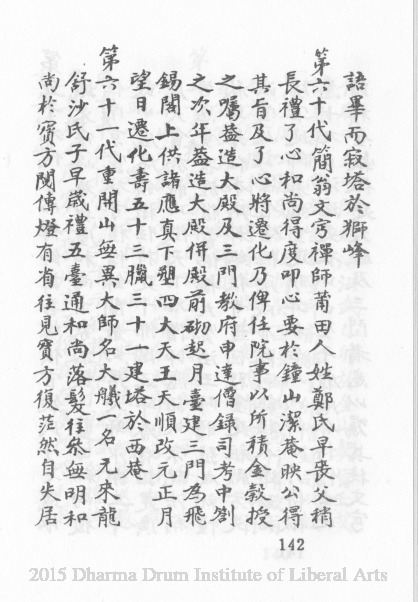 語畢而寂塔於獅峰
第六十代簡翁文穹禪師莆田人姓鄭氏早喪父稍
長禮了心和尚得度叩心要於鐘山潔菴映公得
其旨及了心將遷化乃俾任院事以所積金穀授
之囑葢造大殿及三門教府申達僧錄司考中劄
之次年葢造大殿併殿前砌起月臺建三門為飛
錫閣上供諸應真下塑四大天王天順改元正月
望日遷化壽五十三臘三十一建塔於西庵
第六十一代重開山無異大師名大艤一名元來龍
舒沙氏子早歲禮五臺通和尚落髮往參無明和
尚於寶方閱傳燈有省往見寶方復茫然自失居
142
2015 Dharma Drum Institute of Liberal Arts